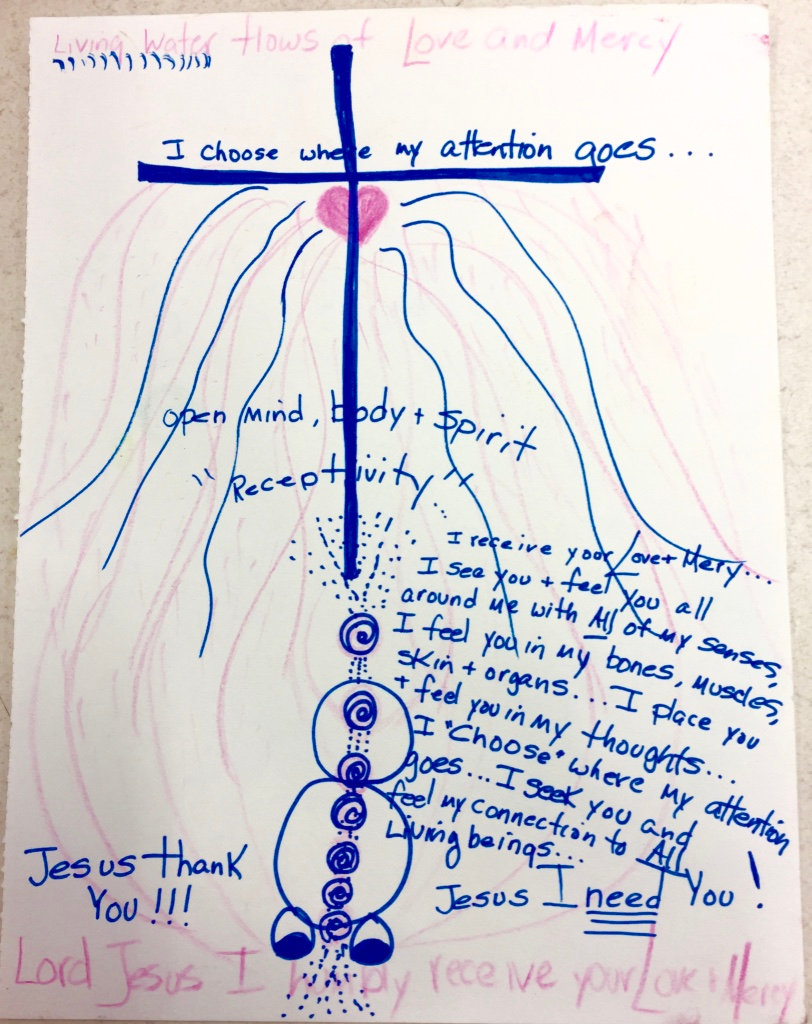 Living Water flows of Love and Mercy
I choose where my attention goes...
open mind, body + Spirit
"Receptivity"
I receive your Love + Mery...
I see you + feel You all
around me with All of my senses,
I feel you in my bones, muscles,
skin + organs... I place you
+ feel you in my thoughts...
I "Choose" where my attention
goes... I seek you and
feel my connection to All
Living beings...
Jesus thank
You!!!
Jesus I need You!
Lord Jesus I humbly receive your Love + Mercy